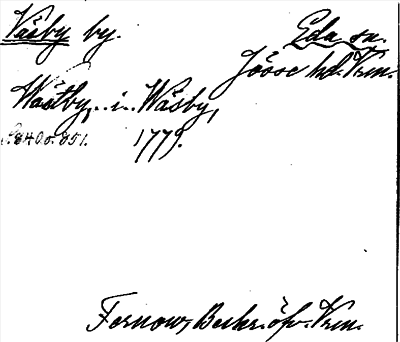 Våsby by. Eda sn.
Jösse hd. Vrm.
Wåstby, .. i .. Wåsby,
s. 840 o. 851. 1779.
Fernow, Beskr. öfv. Vrm.